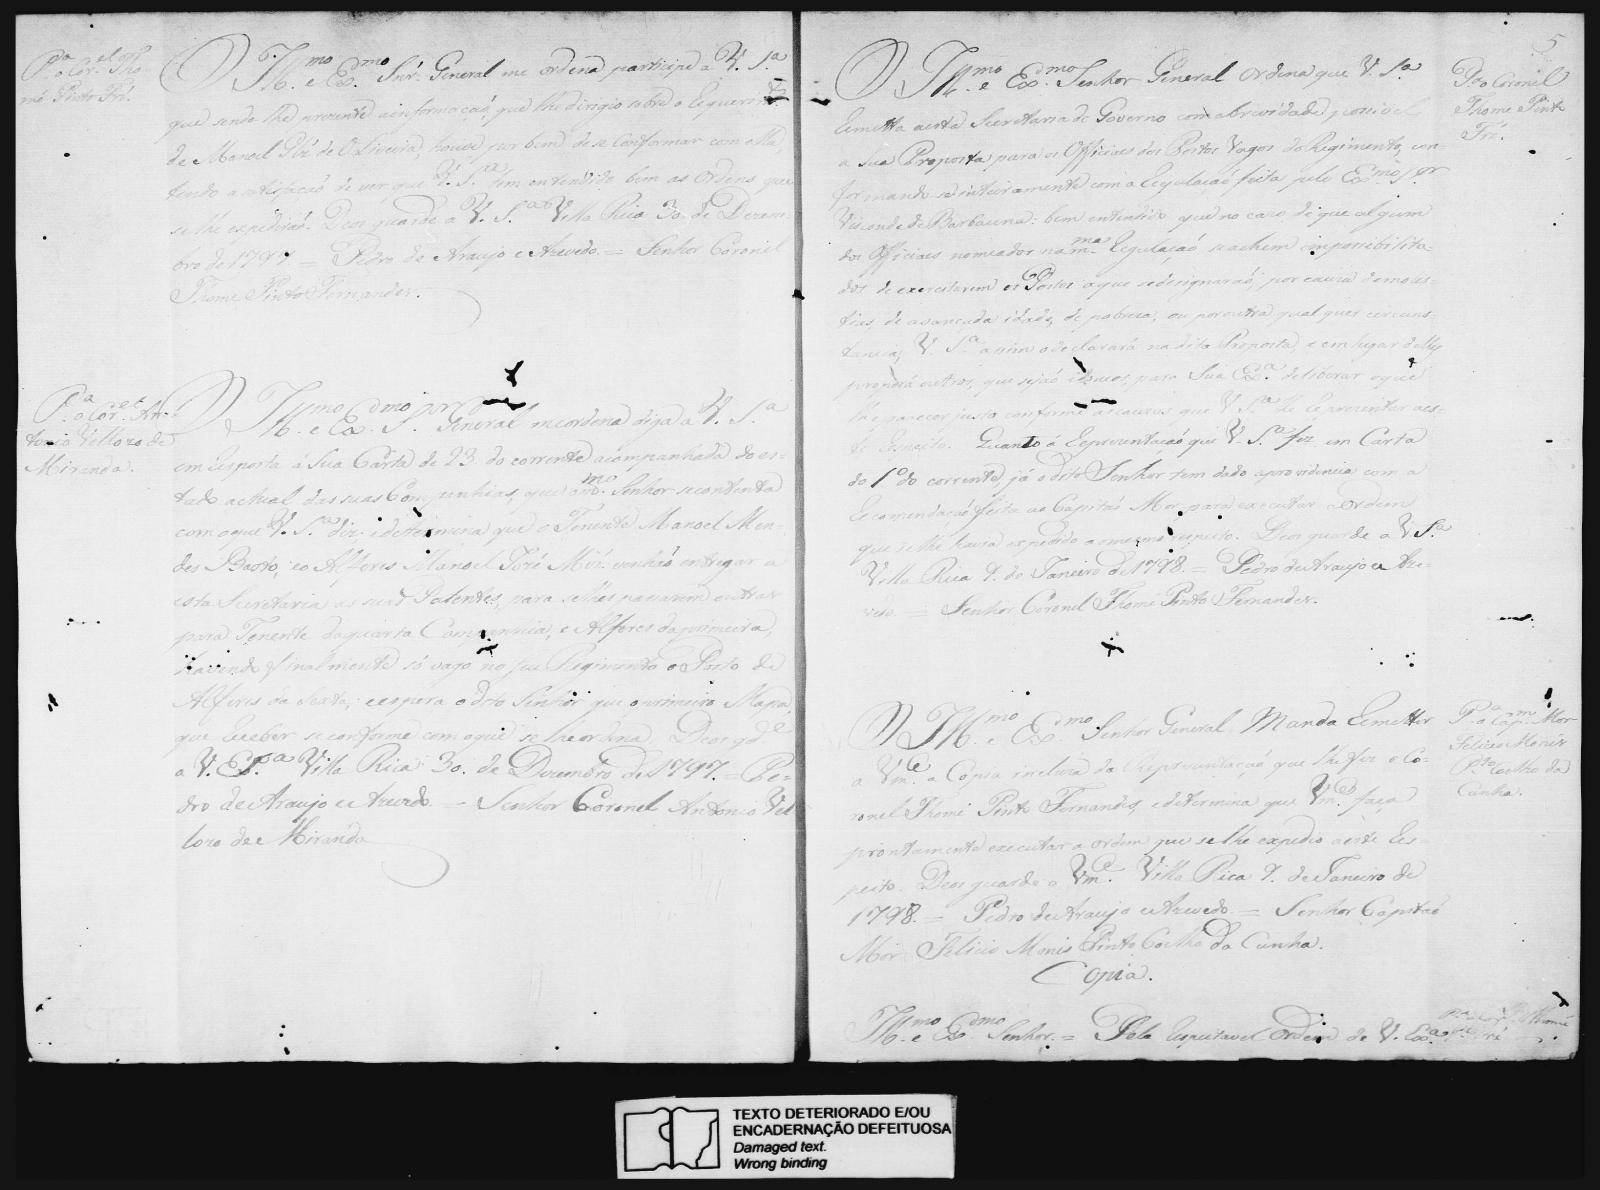 P.ª o Cor.el Tho-
mé Pinto Frz.
O Ill.mo e Ex.mo Snr. General me ordena participe a V. S.ª
que sendo-lhe prezente a informaçaõ, que lhe dirigio sobre o Requerim.to
de Manoel Glz de Oliveira, houve por bem de se conformar com ella,
tendo a satisfaçaõ de ver que V. S.ª tem entendido bem as Ordens que
se lhe expediraõ. Deos guarde a V. S.ª Villa Rica 30. de Dezem-
bro de 1797 = Pedro de Araujo e Azevedo. = Senhor Coronel
Thomé Pinto Fernandes.
P.ª o Cor.el An-
tonio Vellozo de
Miranda.
O Ill.mo e Ex.mo Sr. General me ordena diga a V. S.ª
em resposta á Sua Carta de 23. do corrente acompanhada do es-
tado actual das suas Companhias, que o m.mo Senhor se contenta
com o que V. S.ª diz: e determina que o Tenente Manoel Men-
des Basto, e o Alferes Manoel José venhaõ entregar a
esta Secretaria as suas Patentes, para se lhes passarem outras
para Tenente da quarta Companhia, e Alferes da primeira,
havendo finalmente só vago no seu Regimento o Posto de
Alferes da Sexta; e espera o dito Senhor que o primeiro Mapa,
que receber se conforme com o que se lhe ordena. Deos g.de
a V. S.ª Villa Rica 30. de Dezembro de 1797. = Pe-
dro de Araujo e Azevedo. = Senhor Coronel Antonio Vel
lozo de Miranda
5
P.ª o Coronel
Thome Pinto
Frz.
O Ill.mo e Ex.mo Senhor General Ordena que V. S.ª
Remetta a esta Secretaria do Governo com a brevidade possivel
a Sua Proposta para os Officiaes dos Postos Vagos do Regimento, con-
formando-se inteiramente com a Regulaçaõ feita pelo Ex.mo Sr.
Visconde de Barbacena: bem entendido que no cazo de que algum
dos Officiaes nomeados na m.ma Regulaçaõ se achem impossibilita-
dos de exercitarem os Postos a que se designaraõ, por cauza de moles-
tias, de avançada idade, de pobreza, ou por outra qualquer circuns-
tancia, V. S.ª assim o declarará na dita Proposta, e em lugar delles
proporá outros, que sejaõ idoneos, para Sua Ex.ª deliberar o que
lhe parecer justo conforme as cauzas que V. S.ª lhe Reprezentar a es-
te respeito. Quanto á Reprezentaçaõ que V. S.ª fez em Carta
do 1.º do corrente, já o dito Senhor tem dado a providencia com a
Recomendaçaõ feita ao Capitaõ Mor para executar a Ordem
que se lhe havia expedido ao mesmo respeito. Deos guarde a V. S.ª
Villa Rica 9. de Janeiro de 1798. = Pedro de Araujo e Aze-
vedo. = Senhor Coronel Thomé Pinto Fernandes.
P.ª o Cap.m Mor
Felicio Monis
P.to Coelho da
Cunha.
O Ill.mo e Ex.mo Senhor General Manda Remetter
a Vm.ce a Copia incluza da Reprezentaçaõ que lhe fez o Co-
ronel Thomé Pinto Fernandes, e determina que Vm.ce faça
prontamente executar a ordem que se lhe expedio a este Res-
peito. Deos guarde a Vm.ce Villa Rica 9. de Janeiro de
1798. = Pedro de Araujo e Azevedo. = Senhor Capitaõ
Mor Felicio Monis Pinto Coelho da Cunha.
Copia.
Ill.mo e Ex.mo Senhor. = Pela Respeitavel Ordem de V. Ex.ª
TEXTO DETERIORADO E/OU
ENCADERNAÇÃO DEFEITUOSA
Damaged text.
Wrong binding